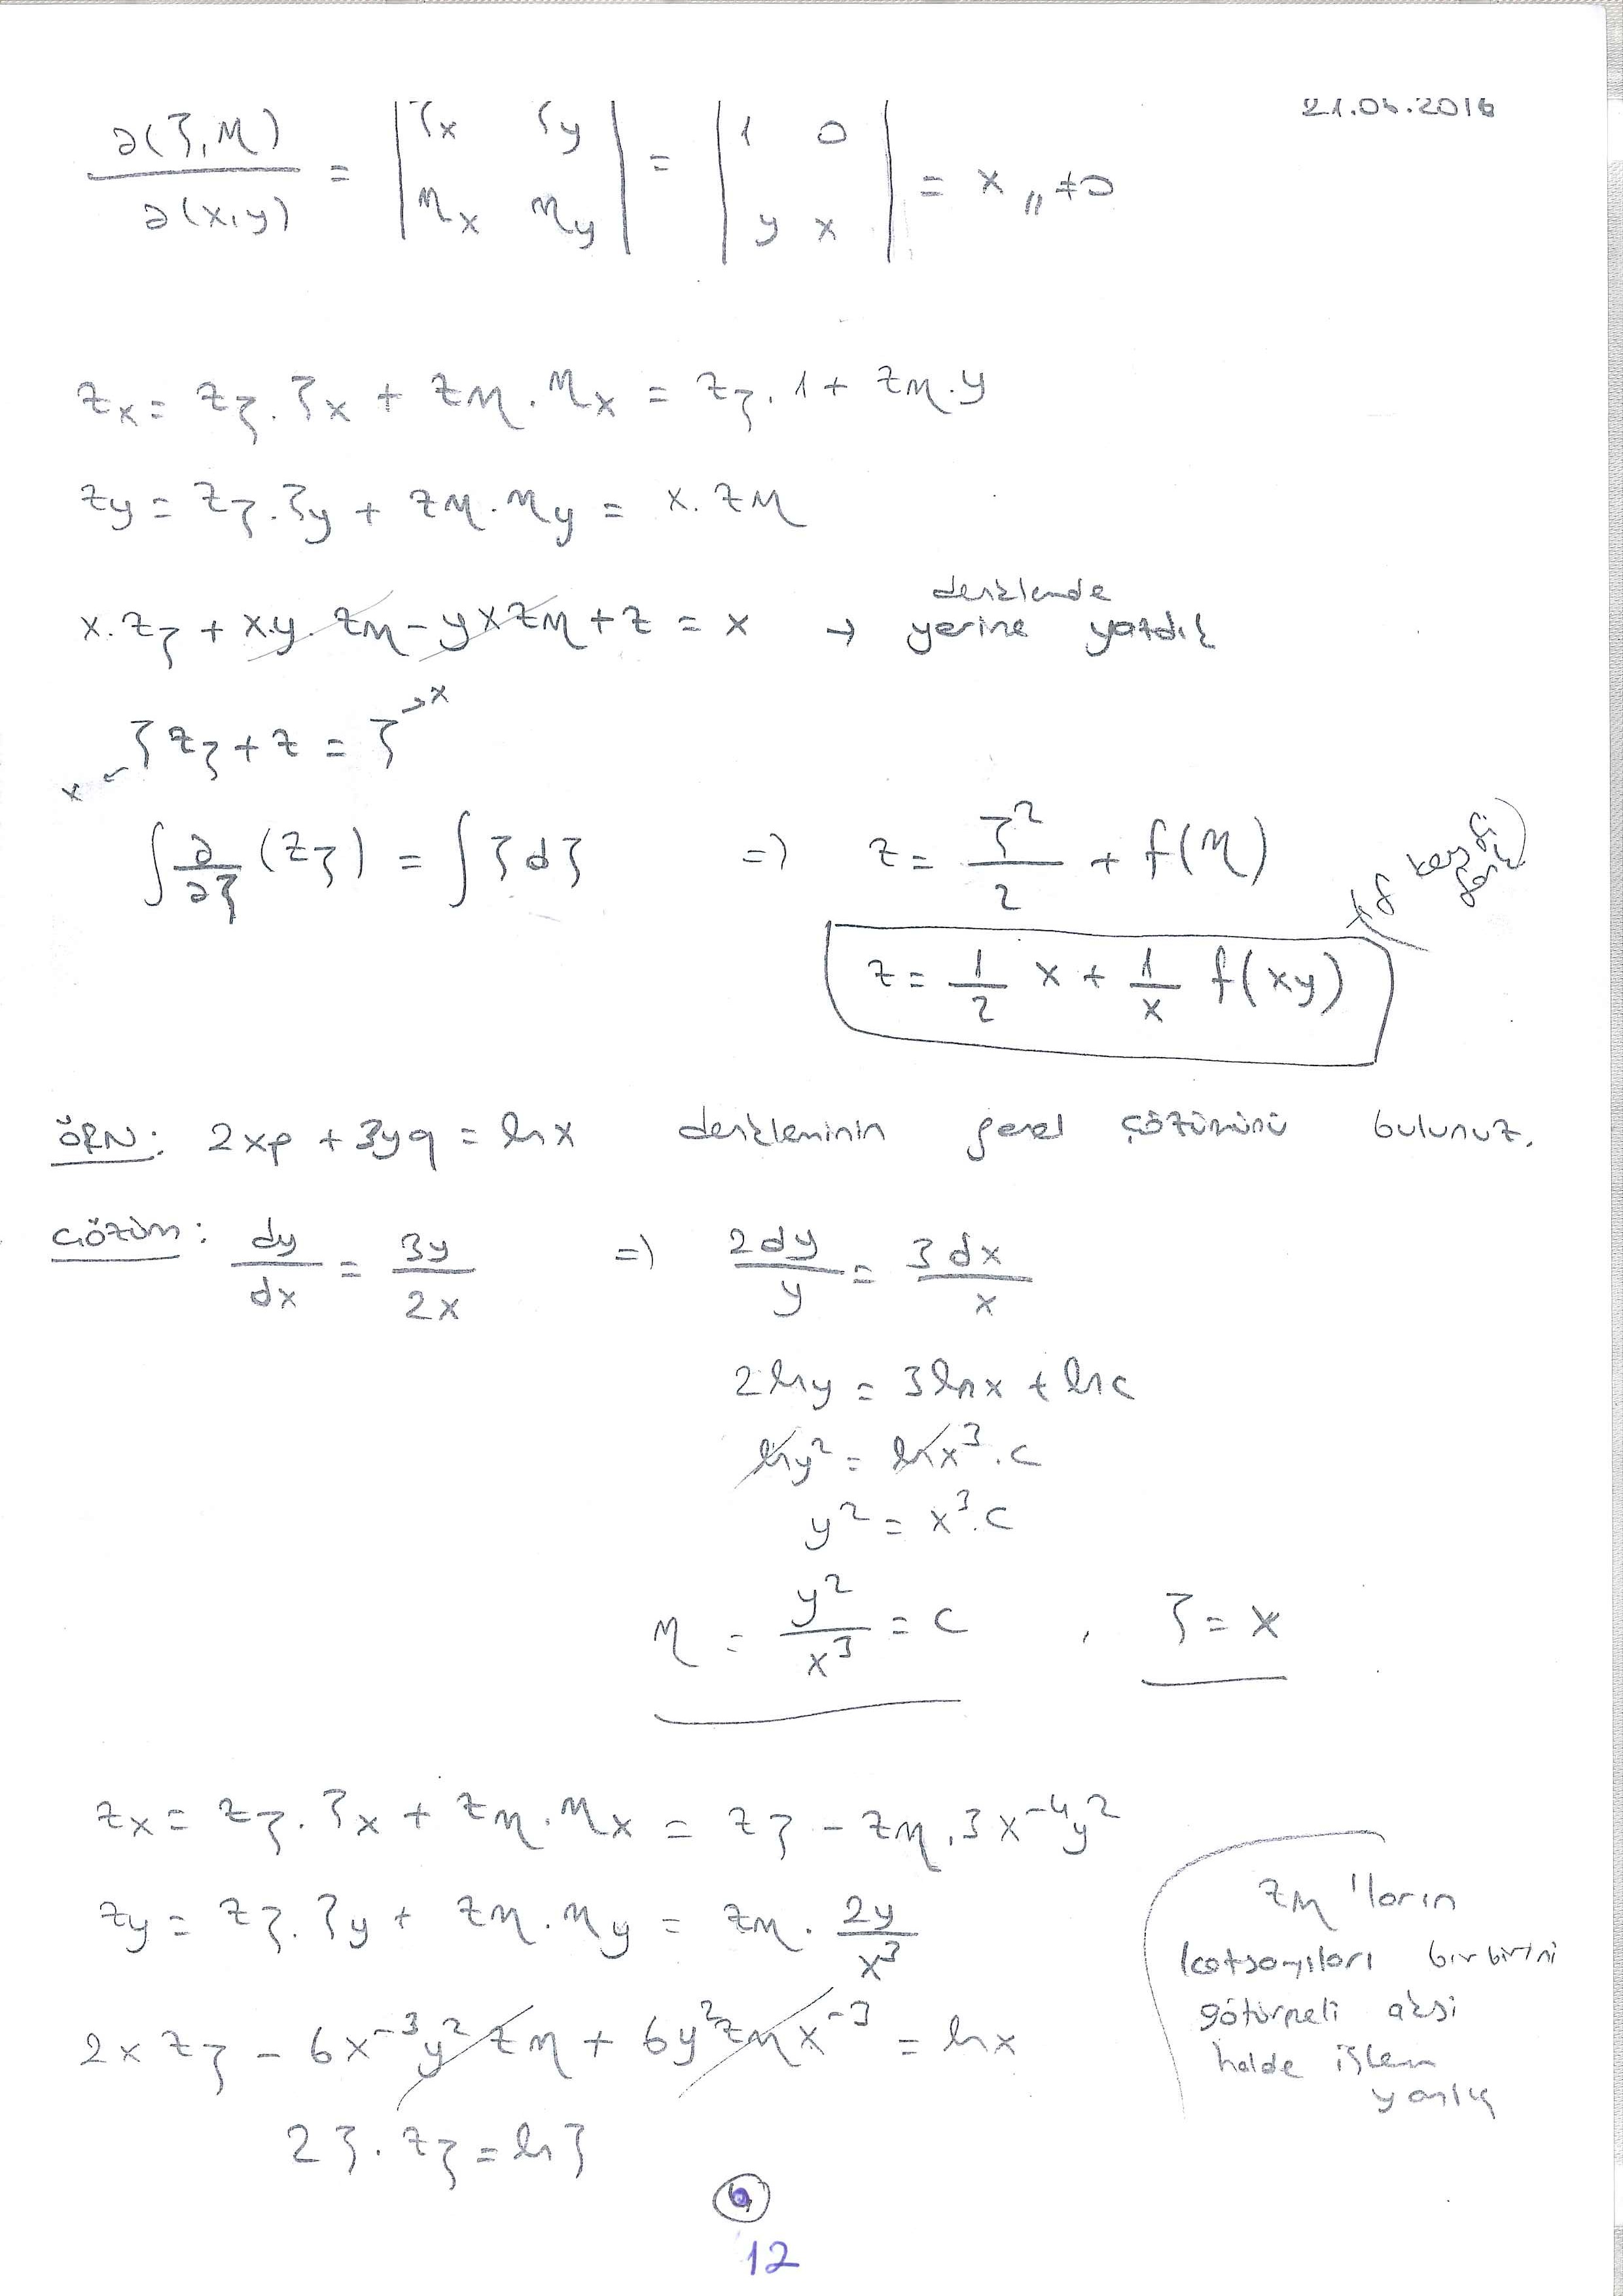 21.04.2016
∂(ζ,η) / ∂(x,y) = | ζx ζy ; ηx ηy | = | 1 0 ; y x | = x,, ≠0
zx = zζ . ζx + zη . ηx = zζ . 1 + zη . y
zy = zζ . ζy + zη . ηy = x . zη
denklemde
x . zζ + x.y . zη - y x zη + z = x → yerine yazdık
ζ zζ + z = ζ → x
x
∫ ∂/∂ζ (zζ) = ∫ ζ dζ => z = ζ²/2 + f(η)
(f keyfi
z = 1/2 x + 1/x f(xy)
ÖRN: 2xp + 3yq = lnx denkleminin genel çözümünü bulunuz.
Çözüm: dy/dx = 3y/2x => 2dy/y = 3dx/x
2lny = 3lnx + lnc
lny² = lnx³ . c
y² = x³ . c
η = y²/x³ = c , ζ = x
zx = zζ . ζx + zη . ηx = zζ - zη . 3x⁻⁴y²
zy = zζ . ζy + zη . ηy = zη . 2y/x³
2x zζ - 6x⁻³y² zη + 6y² zη x⁻³ = lnx
2ζ . zζ = lnζ
zη 'ların
katsayıları birbirini
götürmeli aksi
halde işlem
yanlış
6
12